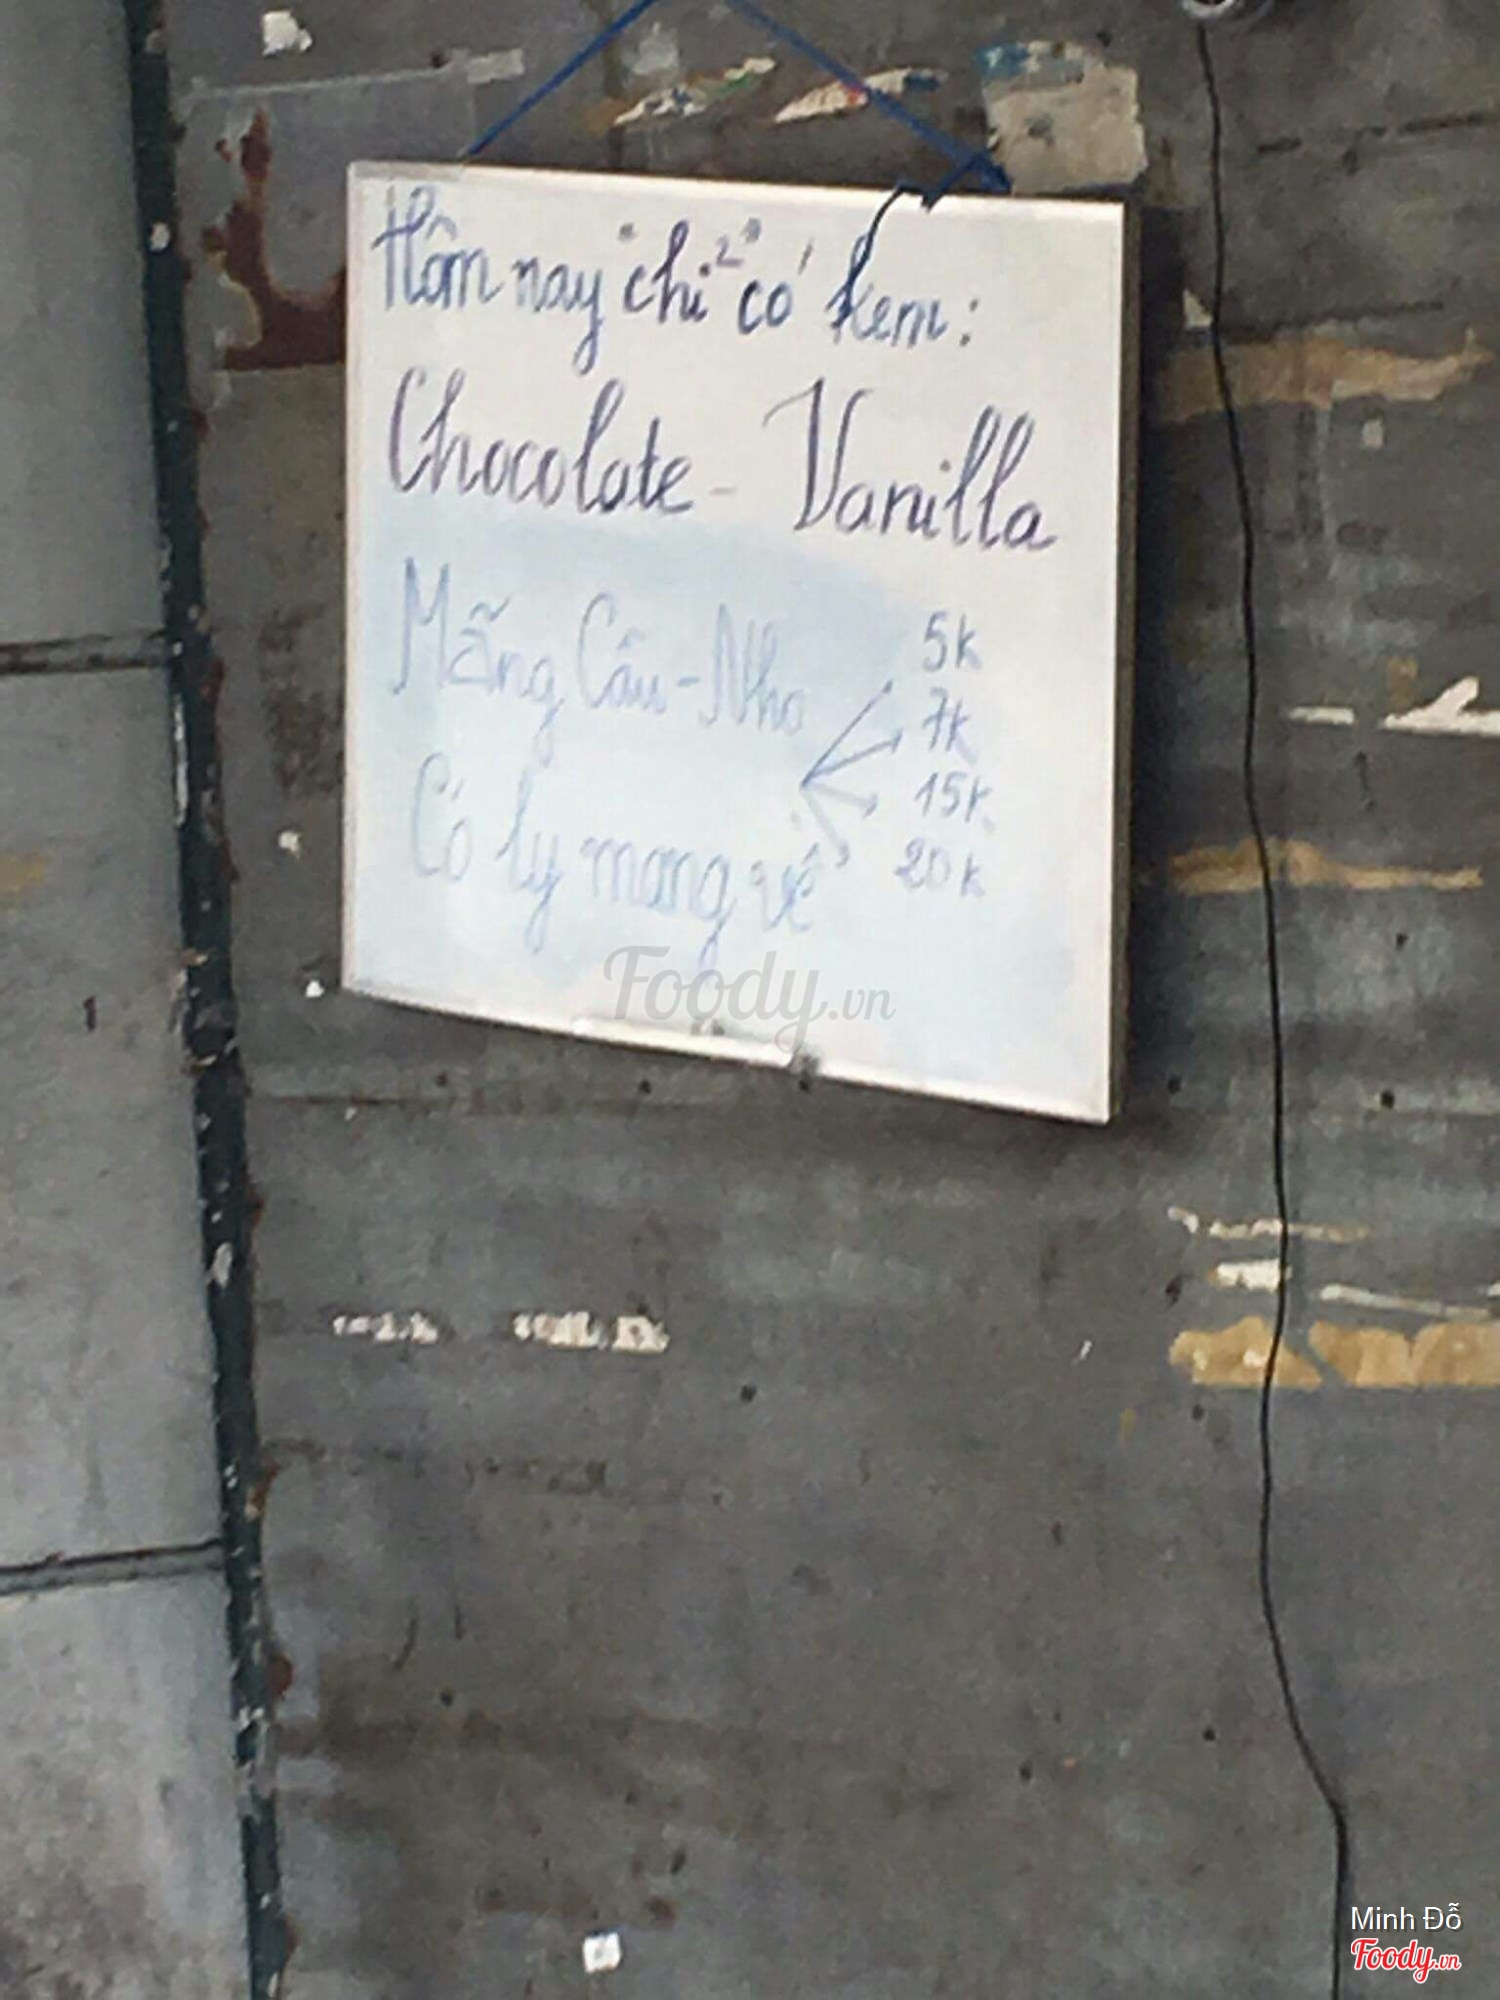 Hôm nay "chỉ" có kem:
Chocolate - Vanilla
Mãng Cầu - Nho
5k
7k
15k
20k
Có ly mang về
Foody.vn
Minh Đỗ
Foody.vn